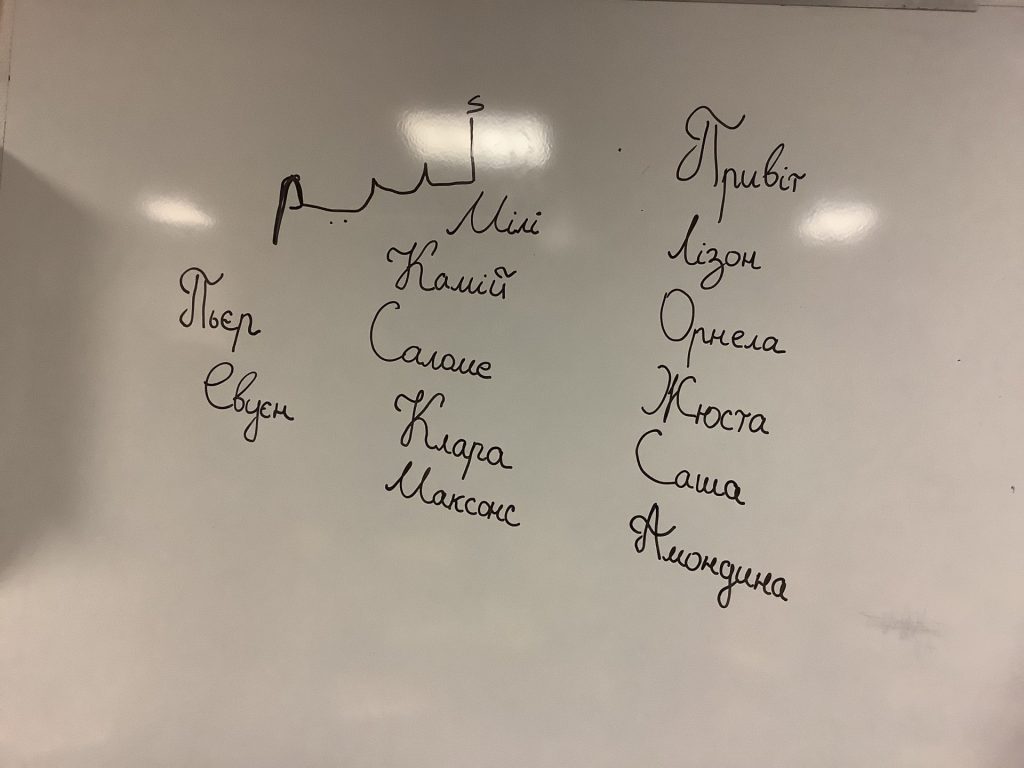 Пьєр
Євуєн
Мілі
Камій
Саломе
Клара
Максонс
Привіт
Лізон
Орнела
Жюста
Саша
Амондина